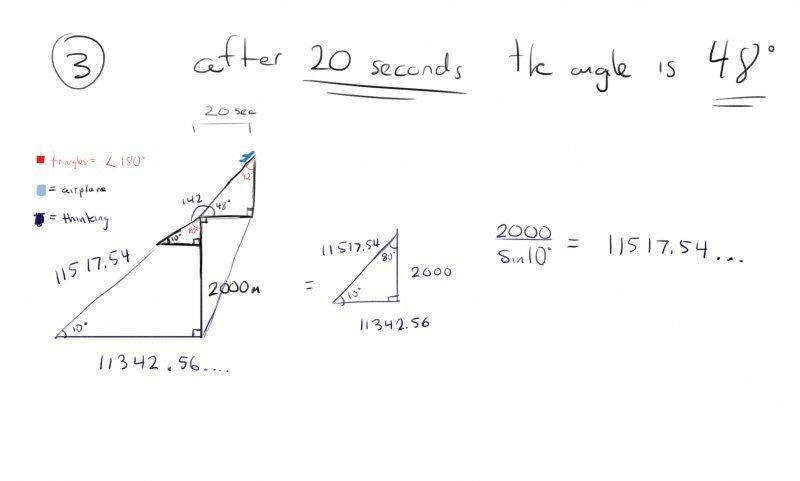 3 after 20 seconds the angle is 48°
20 sec
triangles = ∠180°
= airplane
= thinking
42°
142
48°
10°
80°
11517.54
2000m
10°
11342.56....
=
11517.54
80°
2000
10°
11342.56
2000
sin10° = 11517.54...